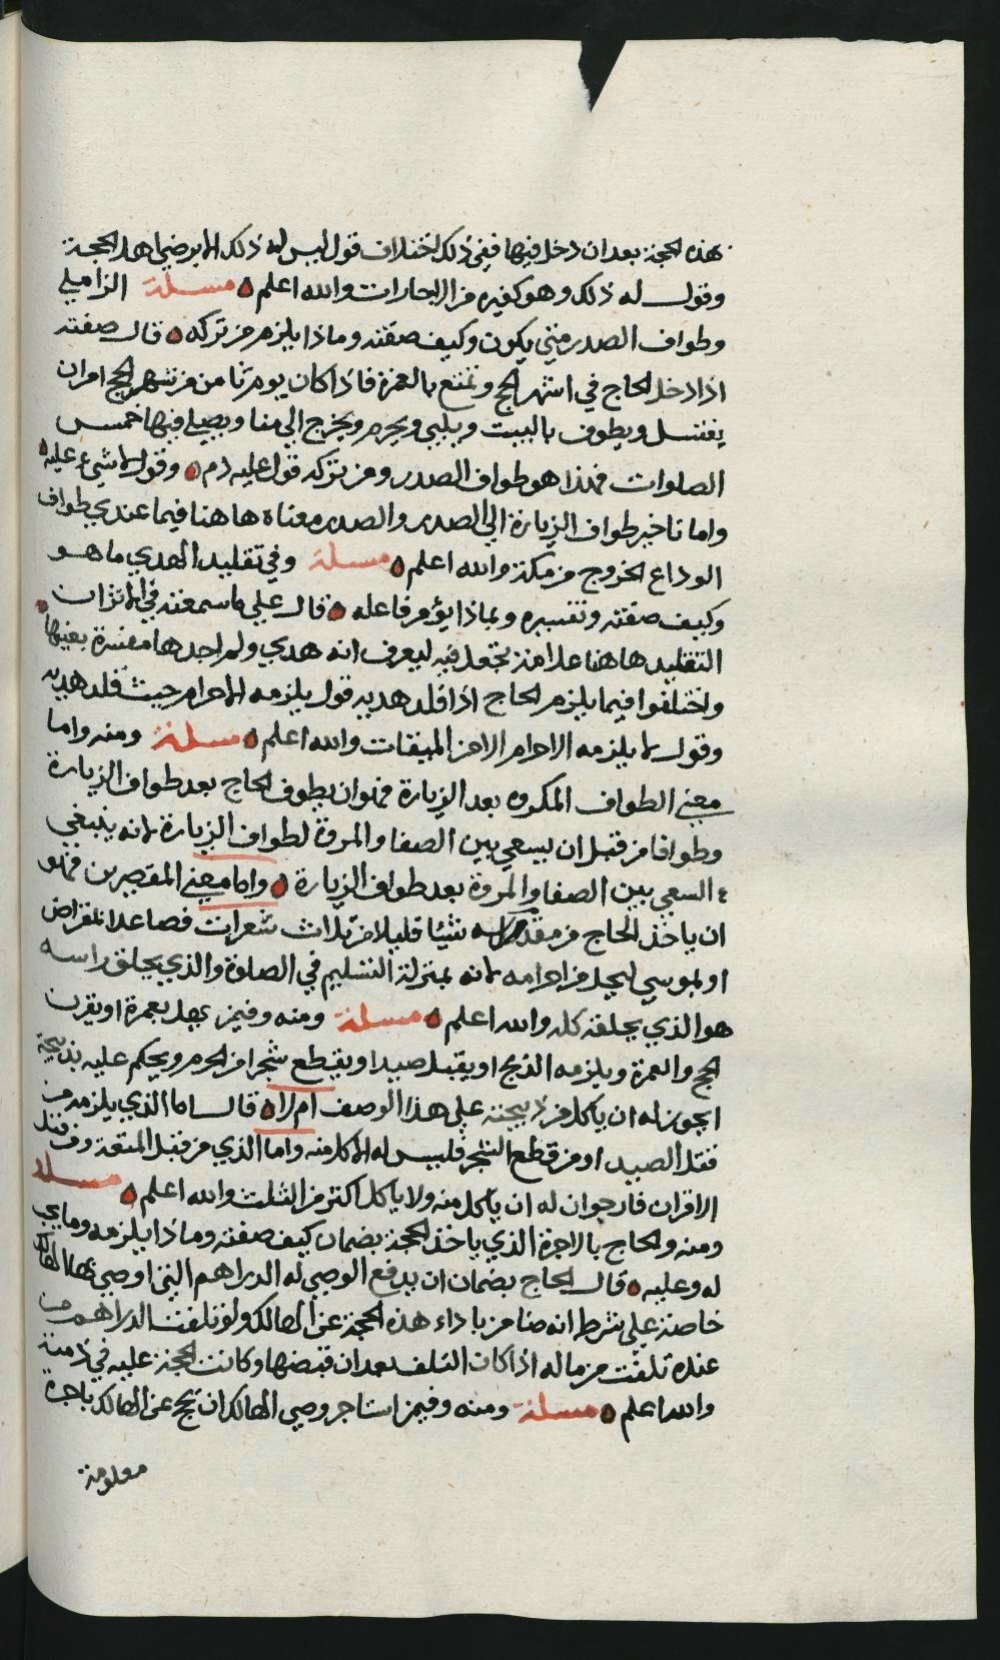 هذه الحجة بعد ان دخل فيها ففي ذلك اختلاف قول ليس له ذلك الا برضى اهل الحجة
وقول له ذلك وهو كغيره من الايجارات والله اعلم مسئلة الزاملي
وطواف الصدر متى يكون وكيف صفته وماذا يلزم من تركه قال صفته
اذا دخل الحاج في اشهر الحج وتمتع بالعمرة فاذا كان يوم ثامن من شهر الحج امر ان
يغتسل ويطوف بالبيت ويلبي ويحرم ويخرج الى منا ويصلي فيها خمس
الصلوات فهذا هو طواف الصدر ومن تركه قول عليه دم وقول لا شيء عليه
واما تاخير طواف الزيارة الى الصدر والصدر معناه هاهنا فيما عندي طواف
الوداع الخروج من مكة والله اعلم مسئلة وفي تقليد الهدي ما هو
وكيف صفته وتفسيره وبماذا يؤمر فاعله قال على ما سمعته في الاثر ان
التقليد هاهنا علامة تجعل فيه ليعرف انه هدي ولم اجدها مفسرة بعينها
واختلفوا فيما يلزم الحاج اذا قلد هديه قول يلزمه الاحرام حيث قلد هديه
وقول لا يلزمه الاحرام الا من الميقات والله اعلم مسئلة ومنه واما
معنى الطواف المكروه بعد الزيارة فهو ان يطوف الحاج بعد طواف الزيارة
وطوافا من قبل ان يسعى بين الصفا والمروة لطواف الزيارة لانه ينبغي
السعي بين الصفا والمروة بعد طواف الزيارة واما معنى المقصرين فهو
ان ياخذ الحاج من مقدم راسه شيئا قليلا من ثلاث شعرات فصاعدا بمقراض
او بموسى ليحل من احرامه لانه بمنزلة التسليم في الصلوة والذي يحلق راسه
هو الذي يحلقه كله والله اعلم مسئلة ومنه وفيمن يهل بعمرة او يقرن
الحج والعمرة ويلزمه الذبح او يقتل صيدا او يقطع شجرا من الحرم ويحكم عليه بذبيحة
ايجوز له ان ياكل من ذبيحته على هذا الوصف ام لا قال اما الذي يلزمه من
قتل الصيد او من قطع الشجر فليس له الاكل منه واما الذي من قبل المتعة ومن قبل
الاقران فارجو ان له ان ياكل منه ولا ياكل اكثر من الثلث والله اعلم مسئلة
ومنه والحاج بالاجرة الذي ياخذ الحجة بضمان كيف صفته وماذا يلزمه وما يجب
له وعليه قال الحاج بضمان ان يدفع الوصي له الدراهم التي اوصى بها الهالك
خاصة على شرط انه ضامن باداء هذه الحجة عن الهالك ولو تلفت الدراهم من
عنده تلفت من ماله اذا كان التلف بعد ان قبضها وكانت الحجة عليه في ذمته
والله اعلم مسئلة ومنه وفيمن استاجر وصي الهالك ان يحج عن الهالك باجرة
معلومة